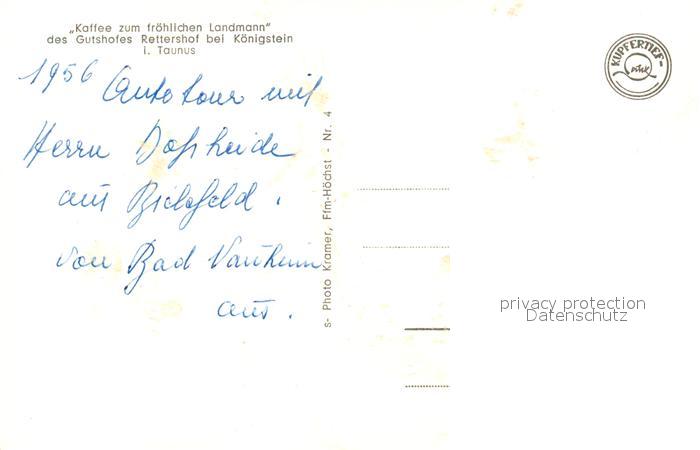 „Kaffee zum fröhlichen Landmann“
des Gutshofes Rettershof bei Königstein
i. Taunus
1956 Autotour mit
Herrn
aus Bielefeld.
von Bad Nauheim
aus.
s- Photo Kramer, Ffm-Höchst - Nr. 4
KUPFERTIEF-
DRUCK
privacy protection
Datenschutz